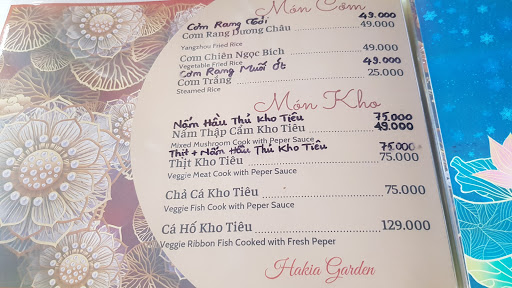 Món Cơm
Cơm Rang Tỏi 49.000
Cơm Rang Dương Châu 49.000
Yangzhou Fried Rice
Cơm Chiên Ngọc Bích 49.000
Vegetable Fried Rice
Cơm Rang Muối Ớt 49.000
Cơm Trắng 25.000
Steamed Rice
Món Kho
Nấm Hầu Thủ Kho Tiêu 75.000
Nấm Thập Cẩm Kho Tiêu 49.000
Mixed Mushroom Cook with Peper Sauce
Thịt + Nấm Hầu Thủ Kho Tiêu 75.000
Thịt Kho Tiêu 75.000
Veggie Meat Cook with Peper Sauce
Chả Cá Kho Tiêu 75.000
Veggie Fish Cook with Peper Sauce
Cá Hố Kho Tiêu 129.000
Veggie Ribbon Fish Cooked with Fresh Peper
Hakia Garden